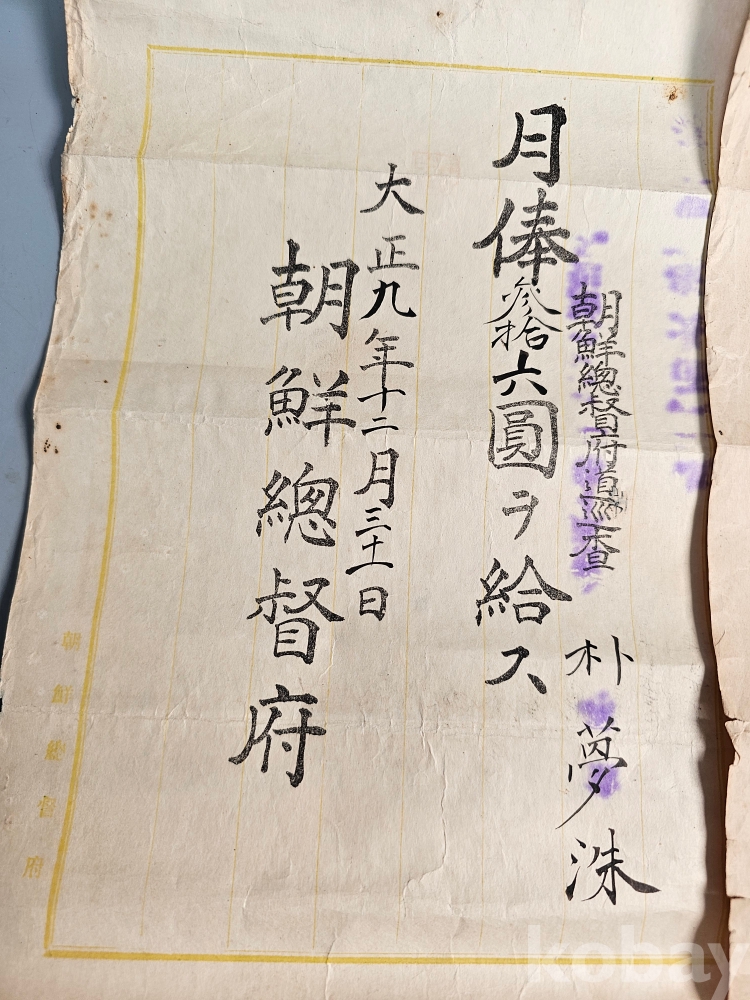 朝鮮總督府道巡査 朴夢洙
月俸参拾六圓ヲ給ス
大正九年十二月三十一日
朝鮮總督府
朝鮮總督府
kobay